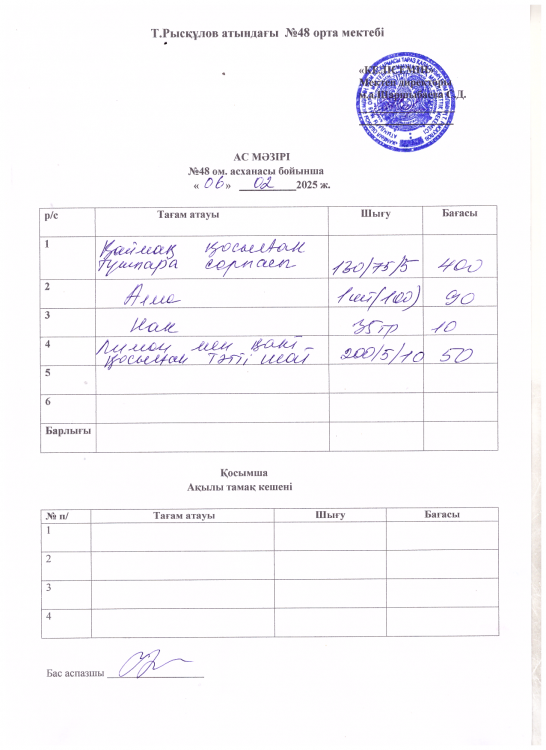 Т.Рысқұлов атындағы №48 орта мектебі
«КЕЛІСЕМІН»
Мектеп директоры
С.Д.
АС МӘЗІРІ
№48 ом. асханасы бойынша
« 06 » 02 2025 ж.
р/с Тағам атауы Шығу Бағасы
1 Қаймақ қосылған
тұшпара сорпасы 130/75/5 400
2 Алма 1 шт(100) 90
3 Нан 35 гр 10
4 Лимон мен қант
қосылған тәтті шай 200/5/10 50
5
6
Барлығы
Қосымша
Ақылы тамақ кешені
№ п/ Тағам атауы Шығу Бағасы
1
2
3
4
Бас аспазшы